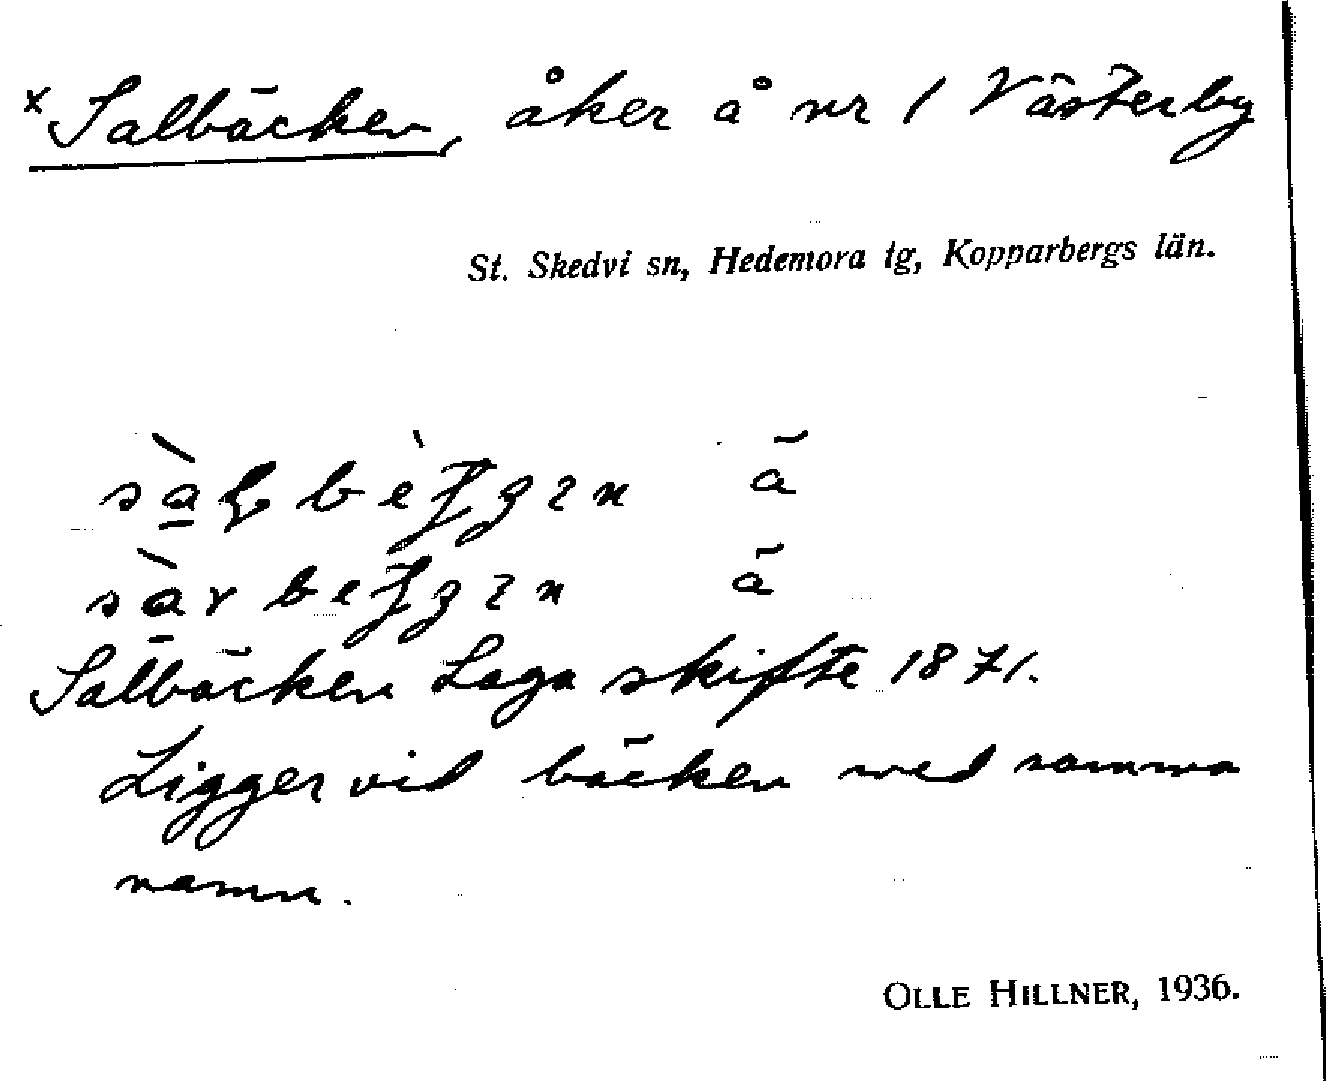 x Salbäcken, åker å nr 1 Västerby
St. Skedvi sn, Hedemora tg, Kopparbergs län.
Salbäcken Laga skifte 1871.
Ligger vid bäcken med samma
namn.
OLLE HILLNER, 1936.